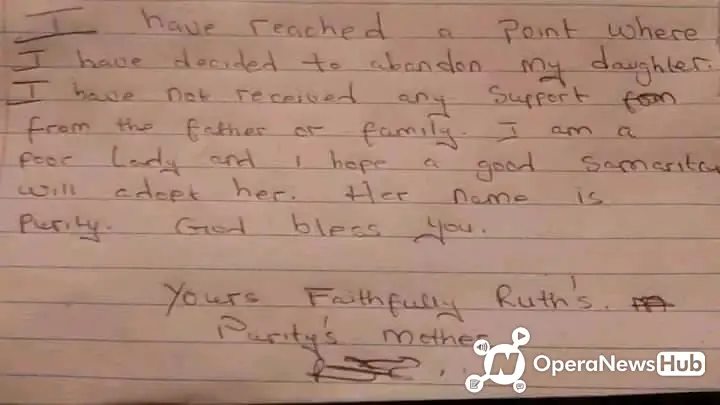 I have reached a Point where
I have decided to abandon my daughter.
I have not received any Support
from the father or family. I am a
poor Lady and I hope a good Samaritan
will adopt her. Her name is
Purity. God bless you.
Yours Faithfully Ruth's.
Purity's mother
OperaNewsHub